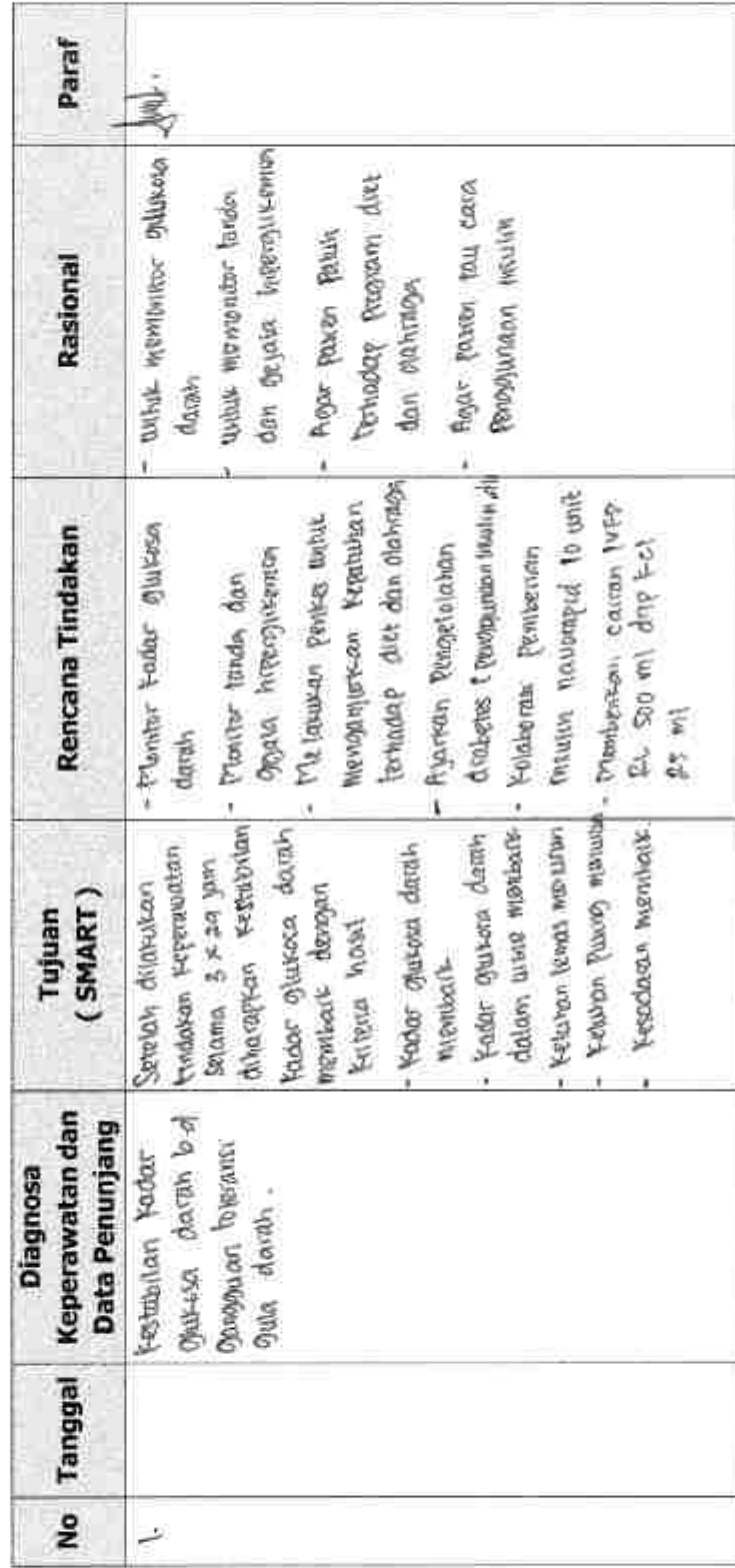 No
Tanggal
Diagnosa
Keperawatan dan
Data Penunjang
Tujuan
( SMART )
Rencana Tindakan
Rasional
Paraf
1.
Kestabilan Kadar
glukosa darah b.d
gangguan toleransi
gula darah.
Setelah dilakukan
tindakan keperawatan
selama 3 x 24 jam
diharapkan kestabilan
kadar glukosa darah
membaik dengan
kriteria hasil
- Kadar glukosa darah
membaik
- Kadar glukosa darah
dalam urine membaik
- Keluhan lemas menurun
- Keluhan pusing menurun
- Kesadaran membaik.
- Monitor kadar glukosa
darah
- Monitor tanda dan
gejala hiperglikemia
- Melakukan Penkes untuk
menganjurkan kepatuhan
terhadap diet dan olahraga
- Ajarkan Pengelolahan
diabetes (penggunaan insulin, dll
- Kolaborasi pemberian
insulin novorapid 10 unit
- Memberikan cairan IVFD
RL 500 ml drip KCl
25 ml
- untuk memonitor glukosa
darah
- untuk memonitor tanda
dan gejala hiperglikemia
- Agar pasien Patuh
terhadap Program diet
dan olahraga
- Agar pasien tau cara
Penggunaan insulin